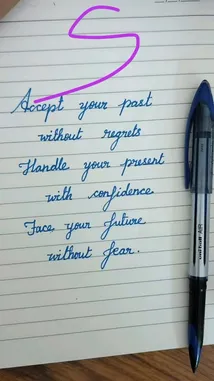 Accept your past
without regrets
Handle your present
with confidence
Face your future
without fear.